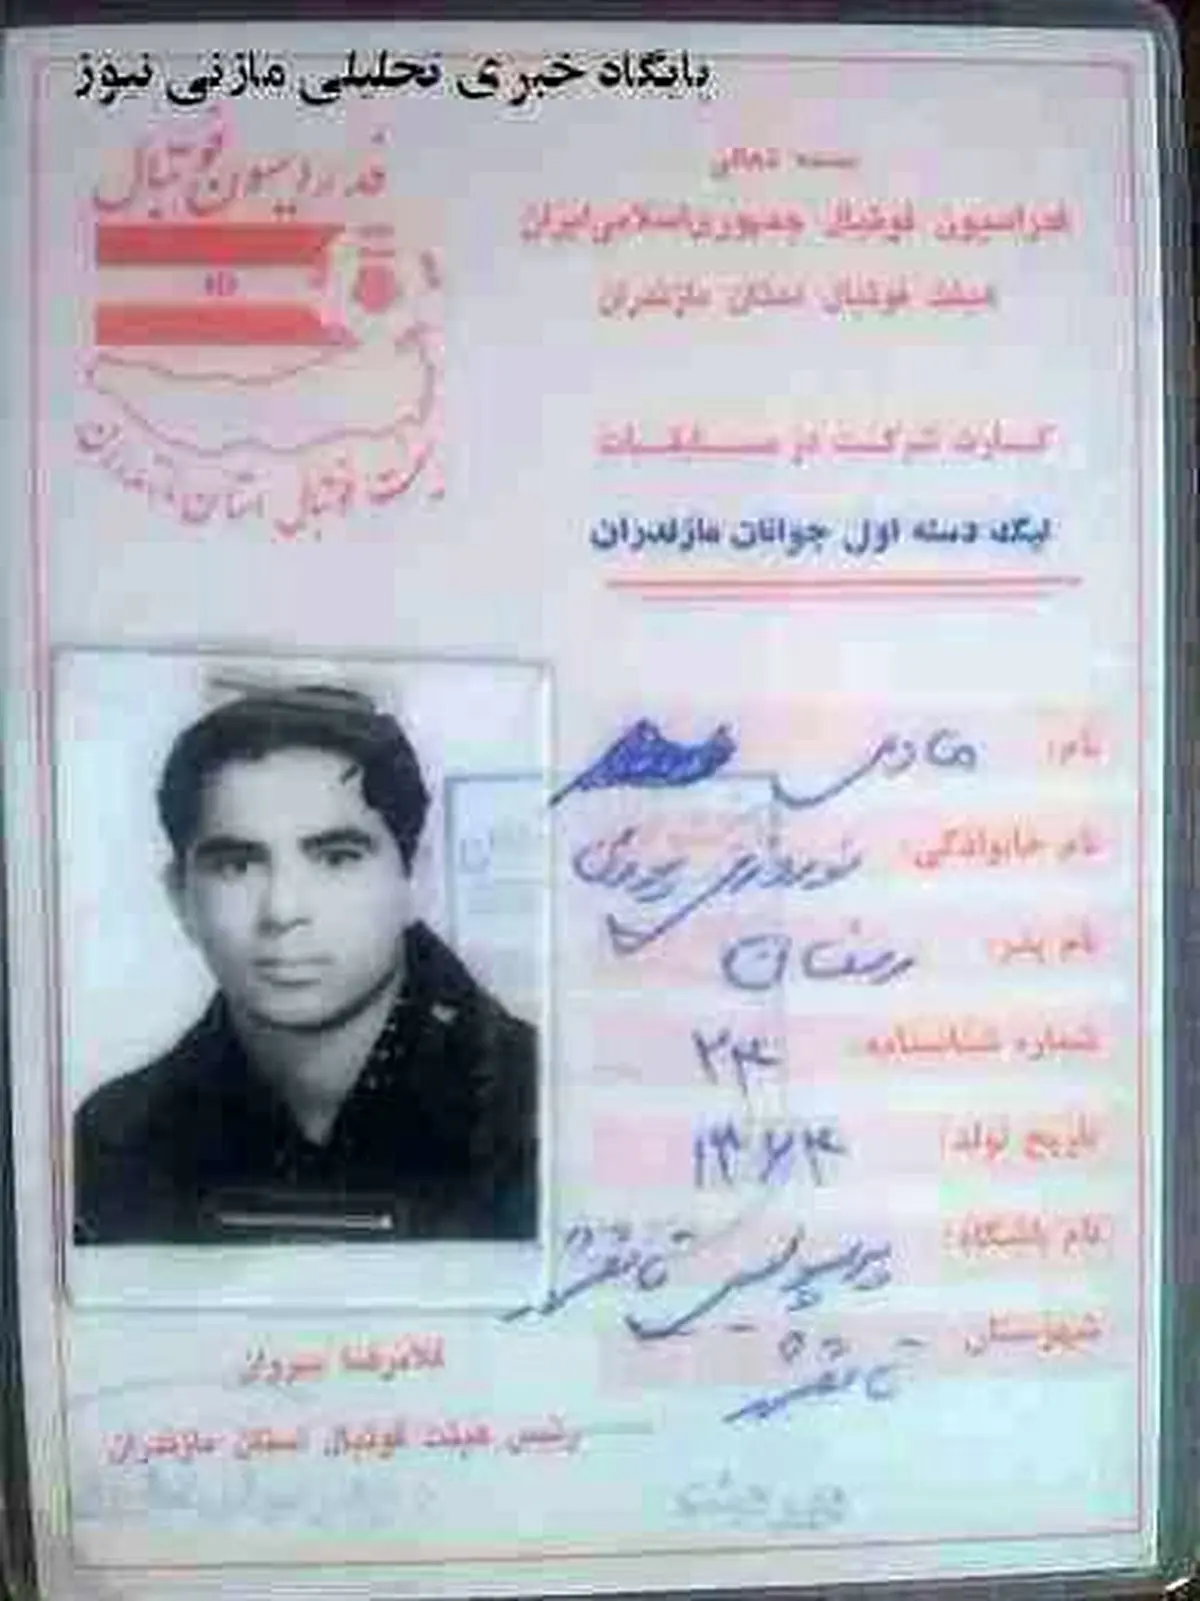 پایگاه خبری تحلیلی مازنی نیوز
فدراسیون فوتبال
هیئت فوتبال استان مازندران
بسمه تعالی
فدراسیون فوتبال جمهوری اسلامی ایران
هیئت فوتبال استان مازندران
کارت شرکت در مسابقات
لیگ دسته اول جوانان مازندران
نام: هادی
نام خانوادگی: نوروزی
نام پدر: رمضان
شماره شناسنامه: ۲۴
تاریخ تولد: ۱۳۶۴
نام باشگاه: پرسپولیس قائمشهر
شهرستان: قائمشهر
غلامرضا
رئیس هیئت فوتبال استان مازندران